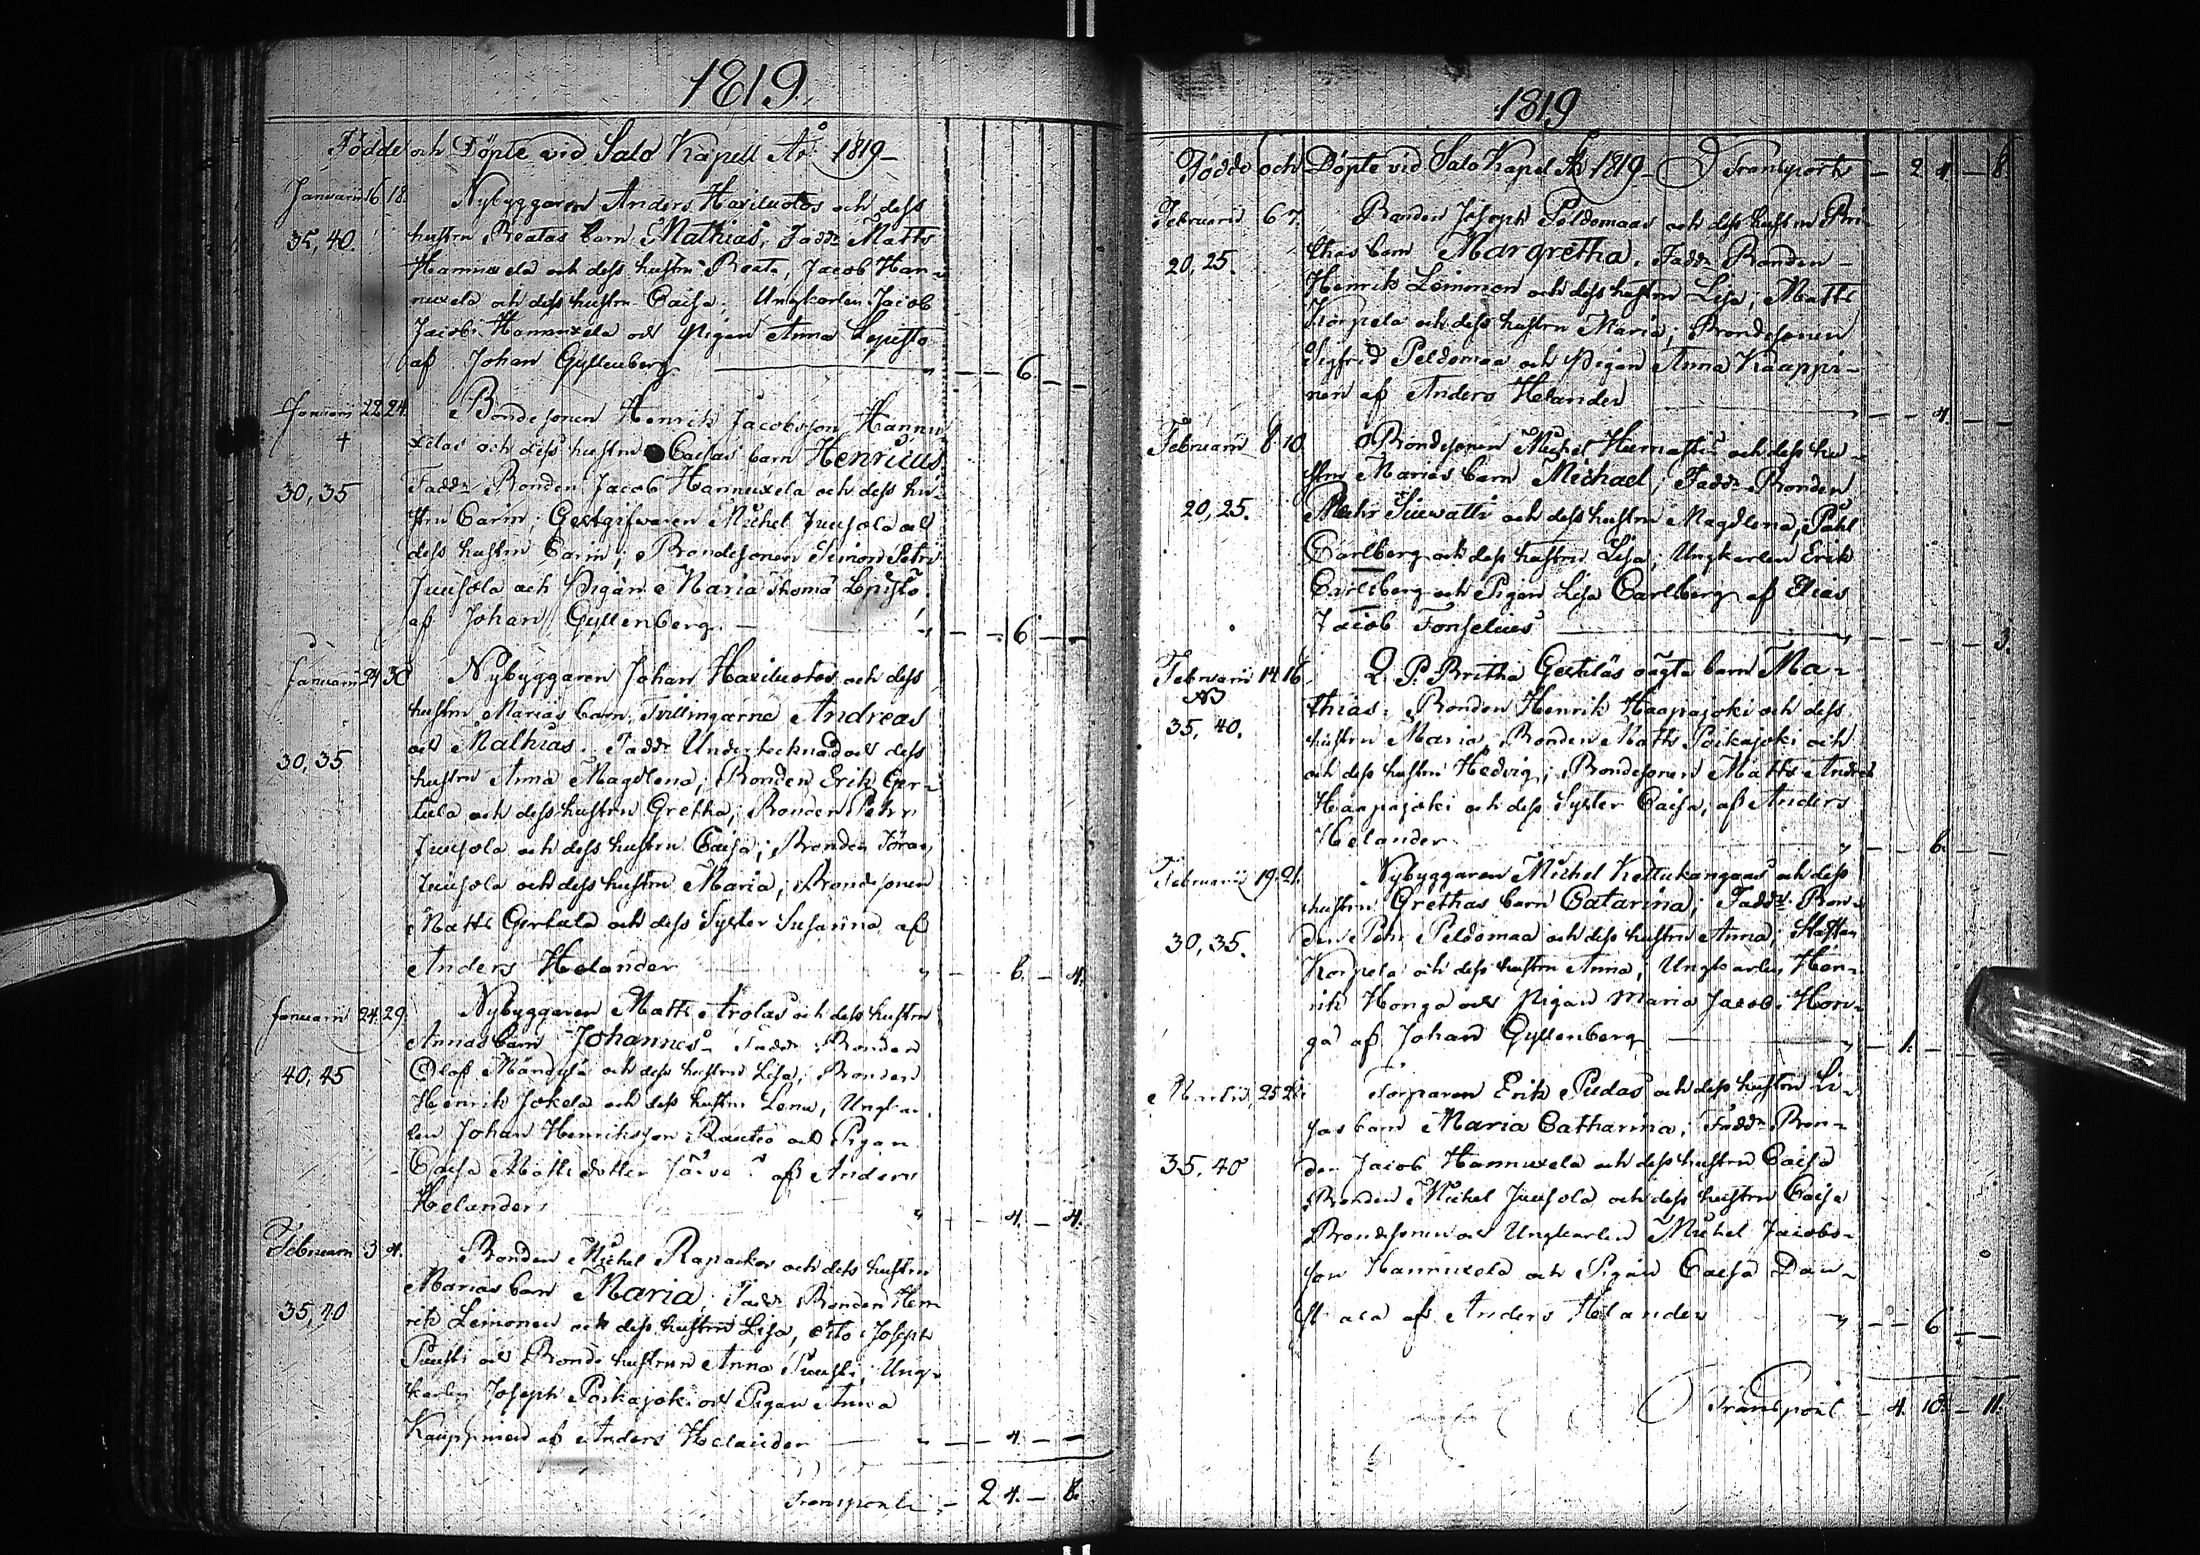 1819.
Födde och Döpte vid Salo Kapell År 1819 –
Januarii 16 18. Nybyggaren Anders Haxiluotos och dess
35, 40. hustru Beatas barn Mathias, Fadd: Matts
Hannuxela och dess hustru Beata, Jacob Han-
nuxela och dess hustru Caisa; Ungkarlen Jacob
Jacobs: Hannuxela och Pigan Anna Lepistö
af Johan Gyllenberg – " – – 6. – –
Januarii 22 24. Bondesonen Henrik Jacobsson Hannu
xelas och dess hustru Caisas barn Henricus
30, 35 Fadd: Bonden Jacob Hannuxela och dess hu-
stru Carin; Gestgifvaren Michel Juusola och
dess hustru Carin; Bondesonen Simon Petri
Juusola och Pigan Maria Thoma Lepistö.
af Johan Gyllenberg – " – – 6 – –
Januarii 29 30 Nybyggaren Johan Haxiluotos och dess
hustru Marias barn, Tvillingarne Andreas
och Mathias. Fadd: Undertecknad och dess
30, 35 hustru Anna Magdlena; Bonden Erik Ger-
tula och dess hustru Gretha; Bonden Pehr
Juusola och dess hustru Caisa; Bonden Jöran
Juusola och dess hustru Maria; Bondesonen
Matts Gertula och dess Syster Susanna af
Anders Helander " – – 6. – 4.
Januarii 24. 29. Nybyggaren Matts Arolas och dess hustru
Annas barn Johannes – Fadd: Bonden
40, 45 Olof och dess hustru Lisa; Bonden
Henrik Jokela och dess hustru Lena, Ungkar-
len Johan Henriksson Rautio och Pigan
Caisa Mattsdotter af Anders
Helander " – – 4. – 4.
Februarii 3 4. Bonden Michel Rapackos och dess hustru
Marias barn Maria; Fadd: Bonden Hen
35, 40 rik Leinonen och dess hustru Lisa, dito Joseph
Puusti och Bonde hustrun Anna Puusti; Ung-
karlen Joseph Poikajoki och Pigan Anna
Kaappinen af Anders Helander – " – – 4. – –
Transport – 2 4. – 8.
1819
Födde och Döpte vid Salo Kapel År 1819 – Transport – 2 4. – 8.
Februarii 6 7. Bonden Joseph Peldomaas och dess hustru Bri-
20, 25. thas barn Margretha. Fadd: Bonden –
Henrik Leinonen och dess hustru Lisa; Matts
Korpela och dess hustru Maria; Bondesonen
Sigfrid Peldomaa och Pigan Anna Kaappi-
nen af Anders Helander – – 4. – –
Februarii 8. 10. Bondesonen Michel och dess hu-
stru Marias barn Michael; Fadd: Bonden
20, 25. Pehr och dess hustru Magdlena, Påhl
Carlberg och dess hustru Lisa; Ungkarlen Erik
Carlsberg och Pigan Lisa Carlberg af Elias
Jacob Fonselius – – – 3.
Februarii 14. 16. Q. P. Britha Gertilas oägta barn Ma-
NB thias. Bonden Henrik Haapajoki och dess
35, 40. hustru Maria; Bonden Matts Poikajoki och
och dess hustru Hedvig; Bondesonen Matts Anders
Haapajoki och dess Syster Caisa, af Anders
Helander " – – 6. – –
Februarii 19. 21. Nybyggaren Michel Kettukangaas och dess
hustru Grethas barn Catarina; Fadd: Bon-
30, 35. den Pehr Peldomaa och dess hustru Anna; Staffan
Korpela och dess hustru Anna, Ungkarlen Hen-
rik Honga och Pigan Maria Jacobs: Hon-
ga af Johan Gyllenberg – " – 1. – –
Martii 25 26. Torparen Erik Pudas och dess hustru Li-
sas barn Maria Catharina; Fadd: Bon-
35, 40 den Jacob Hannuxela och dess hustru Caisa
Bonden Michel Juusola och dess hustru Caisa
Bondesonen och Ungkarlen Michel Jacobs-
son Hannuxela och Pigan Caisa
af Anders Helander " – – 6. – –
Transport – 4. 10. – 11.